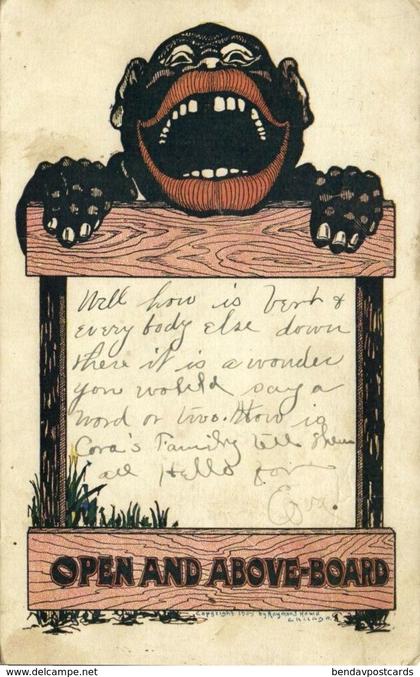 Well how is Bert &
every body else down
there it is a wonder
you would say a
word or two. How is
Cora's Family tell them
all Hello from
Eva.
OPEN AND ABOVE-BOARD
Copyright 1905 by Raymond Howe
Chicago.
www.delcampe.net
bendavpostcards